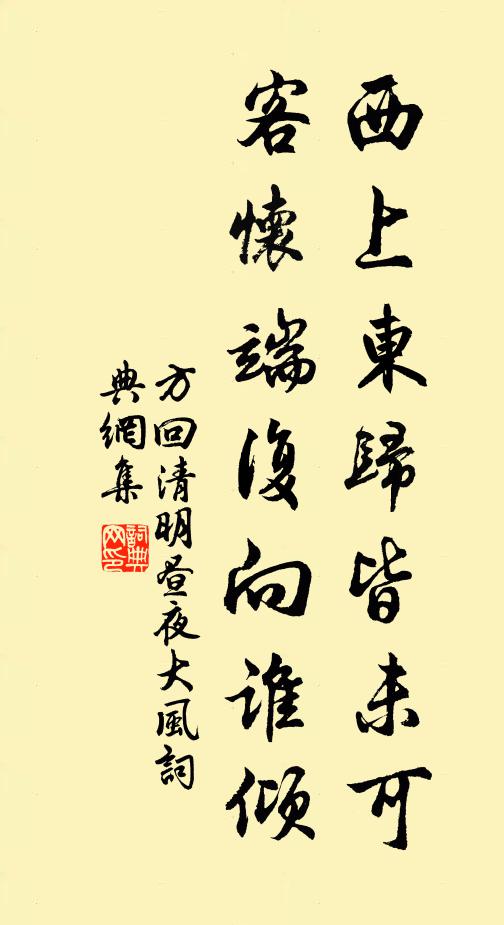 西上東歸皆未可
客懷端復向誰傾
方回清明昼夜大風詞
典網集
詞典網印